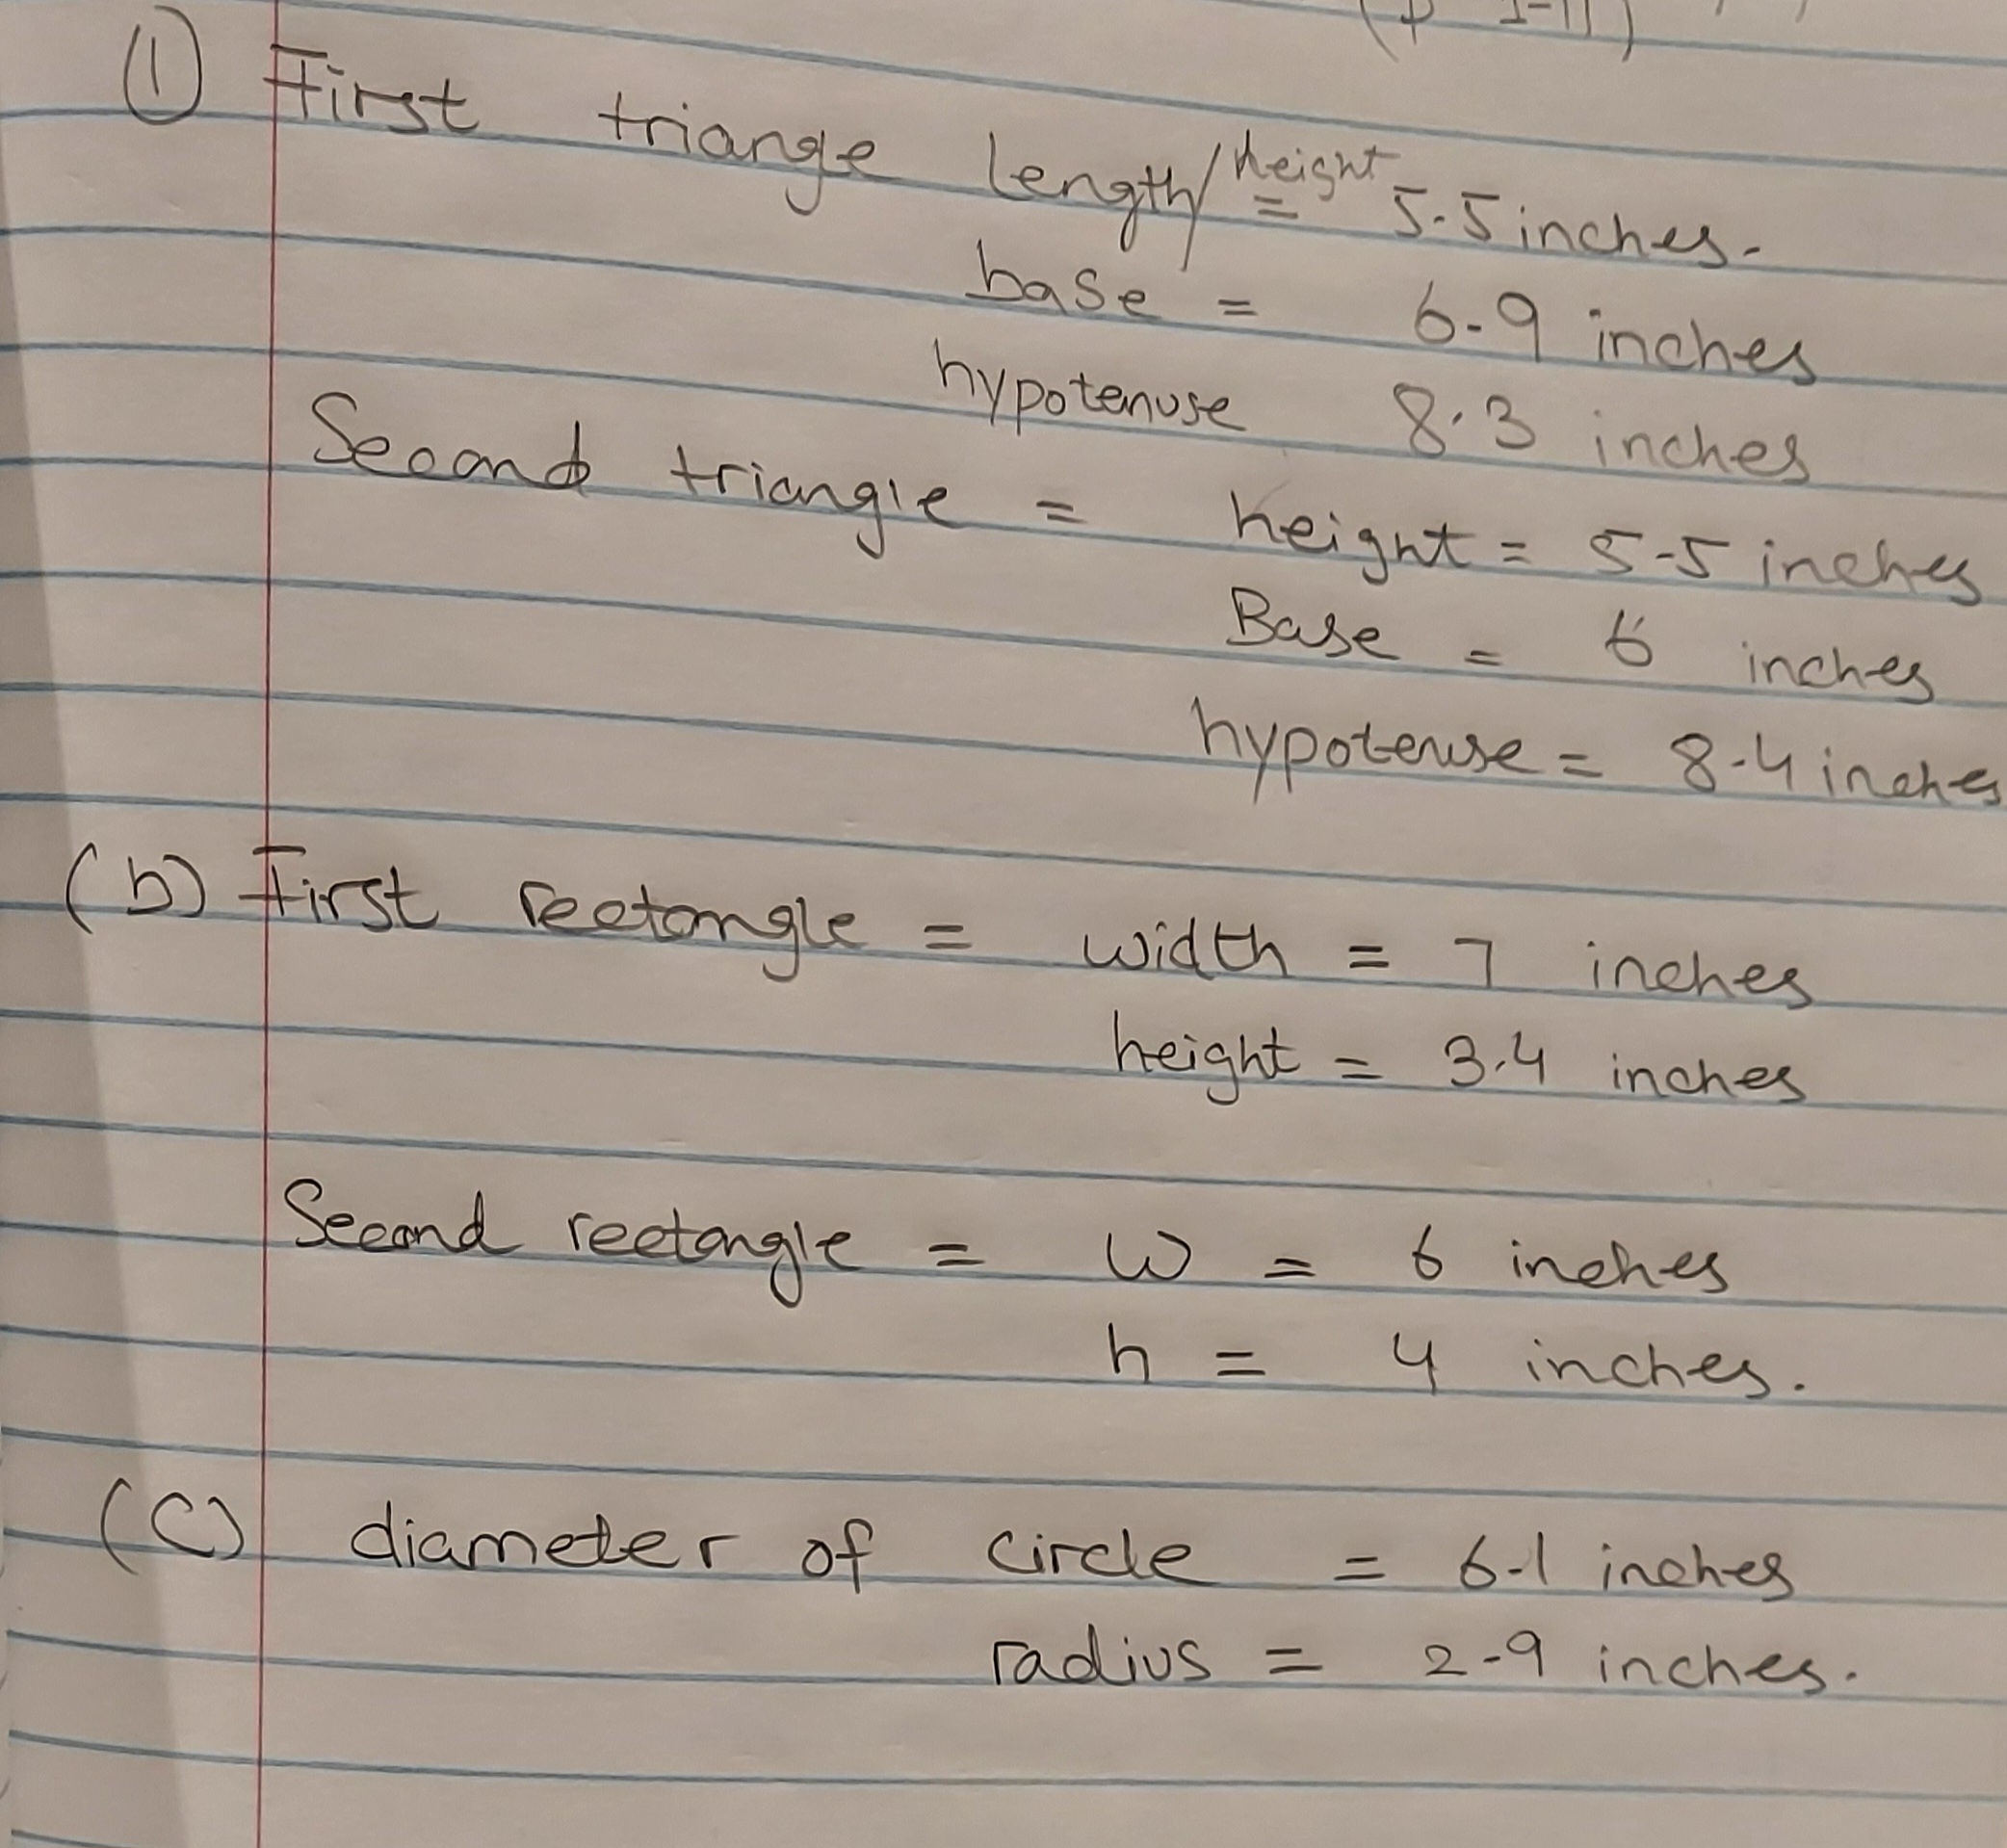 ① First triange length/height = 5.5 inches.
base = 6.9 inches
hypotenuse 8.3 inches
Second triangle = height = 5.5 inches
Base = 6 inches
hypotenuse = 8.4 inches
(b) First rectangle = width = 7 inches
height = 3.4 inches
Second rectangle = w = 6 inches
h = 4 inches.
(C) diameter of circle = 6.1 inches
radius = 2.9 inches.